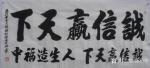 誠信贏天下
誠信贏天下 人生造福中